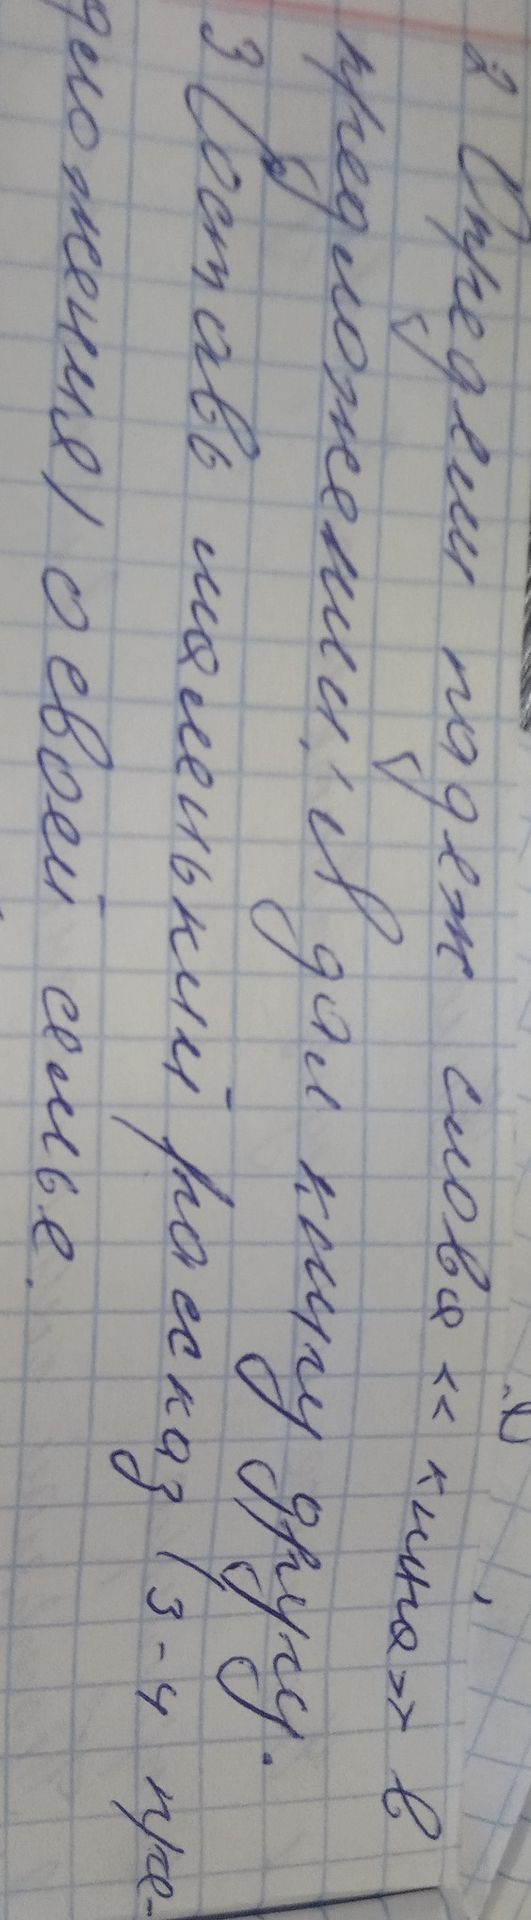 2 Определи падеж слова « книга» в
предложении: Я дал книгу другу.
3 Составь маленький рассказ (3-4 пре-
дложения) о своей семье.